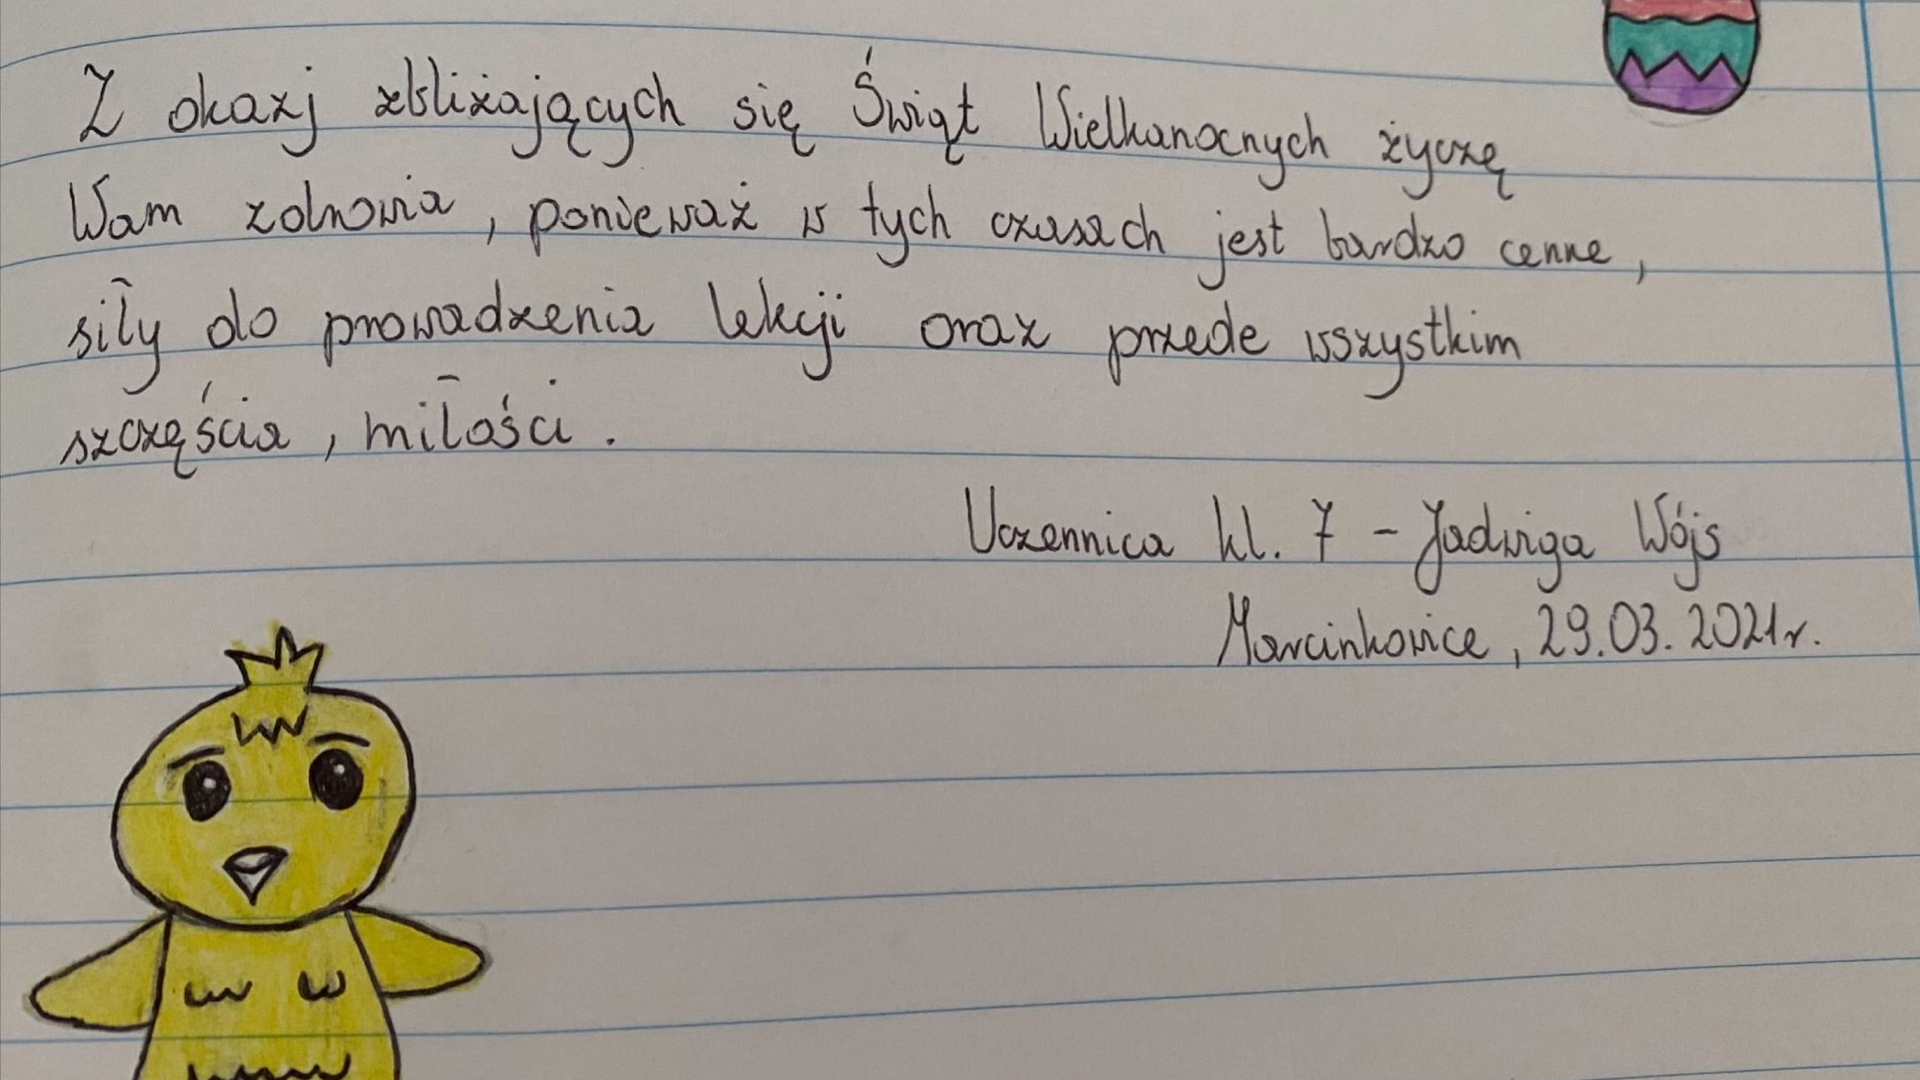 Z okazj zbliżających się Świąt Wielkanocnych życzę
Wam zdrowia, ponieważ w tych czasach jest bardzo cenne,
siły do prowadzenia lekcji oraz przede wszystkim
szczęścia, miłości.
Uczennica kl. 7 - Jadwiga Wójs
Marcinkowice, 29.03.2021r.